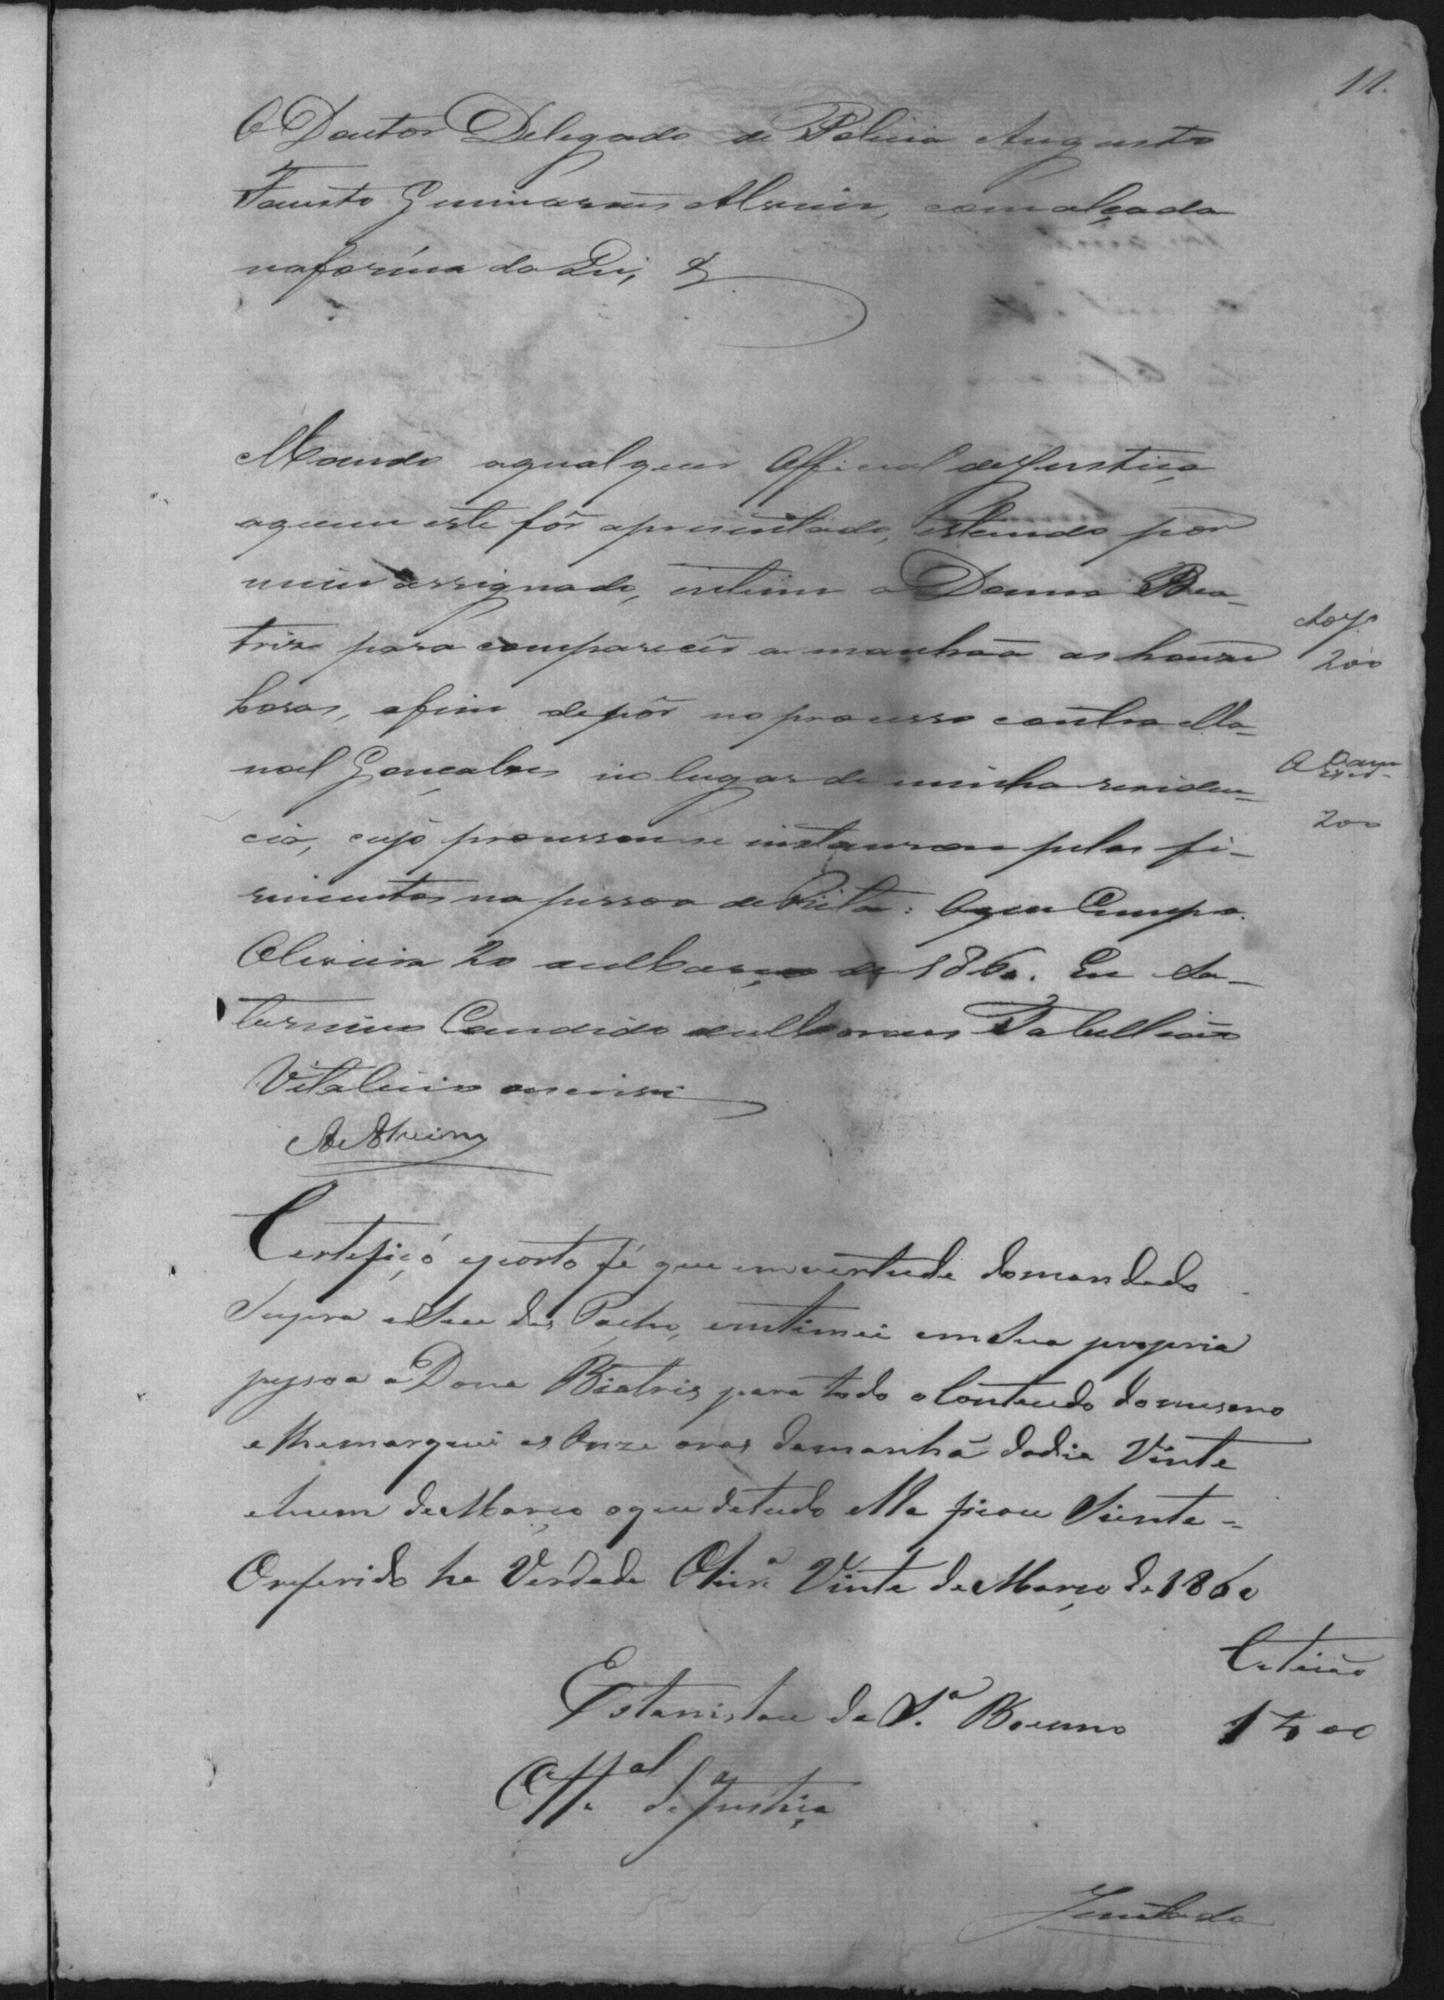 11.
O Doutor Delegado de Policia Augusto
Fausto Guimaraes Alvim, com alçada
na fórma da Lei, &
Mando a qual quer Official de Justiça
a quem este fôr apresentado, estando por
mim assignado, intime a Donna Bea-
triz para comparecêr a manhaã as honze
horas, afim depôr no processo contra Ma-
noel Gonçalves no lugar de minha residen-
cia, cujo processo se instaurou pelos fi-
rimentos na pessoa de Rita: O que Cumpra.
Oliveira 20 de Março de 1860. Eu Sa-
turnino Candido de Moraes Tabellião
Vitalicio o escrivi
Alvim
200
200
Certefiçó e porto fé que em vertude do mandado
Supra e Seu des Pacho, entimei em Sua propria
pessoa a Dona Biatris para todo o Conteudo do mesmo
e lhe marquei as Onze oras da manhã do dia Vinte
e hum de Março o que de tudo ella ficou Siente =
O referido he Verdade Olivrª Vinte de Março de 1860
Estanislau da Sª Boeno
Offal de Justiça
1400
Juntada